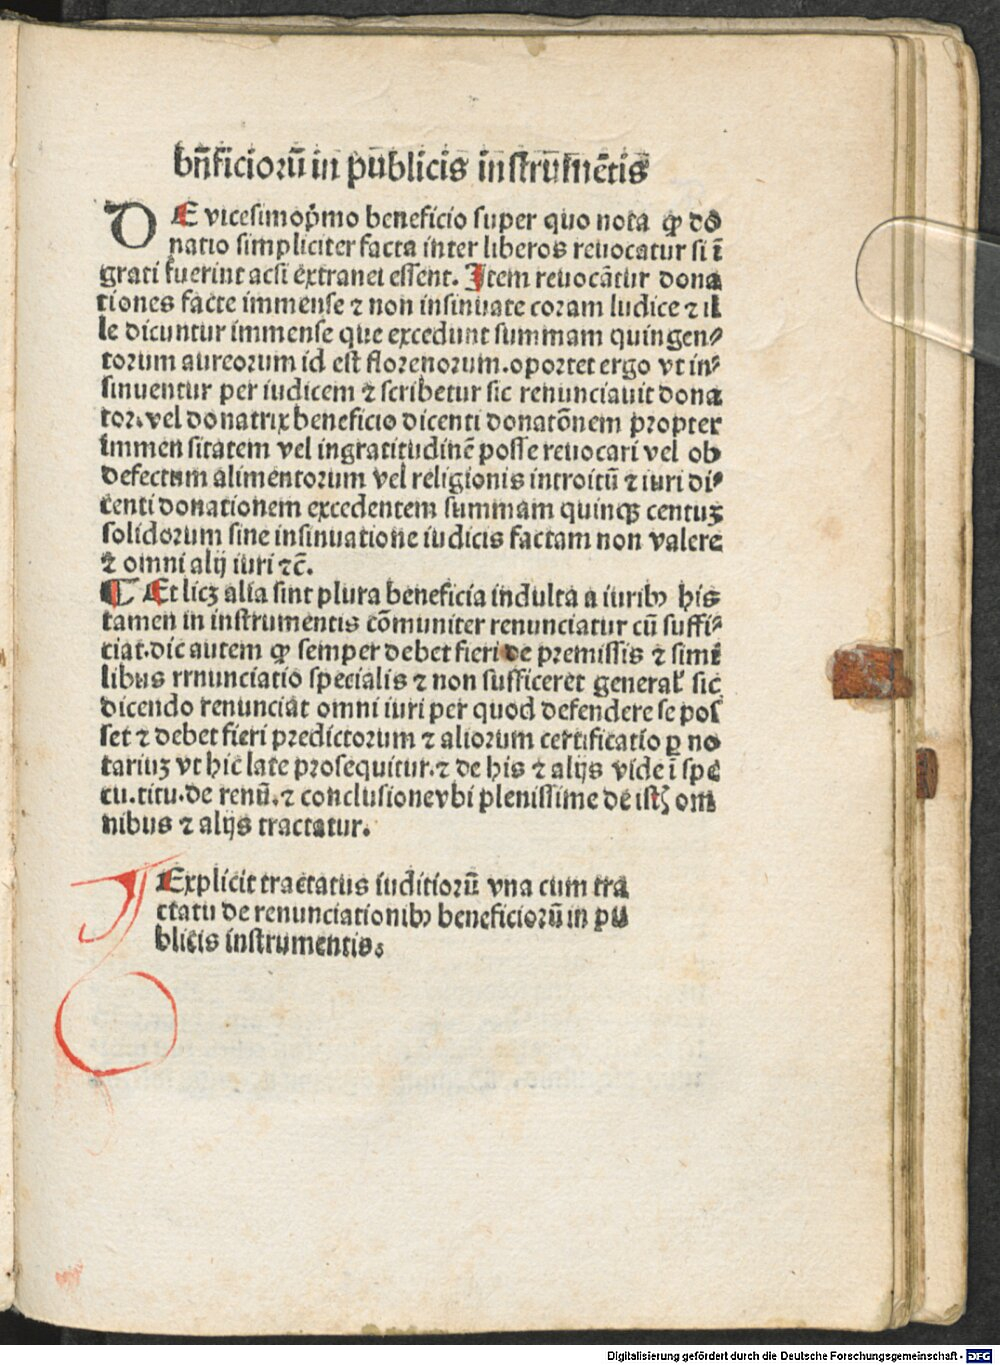 bn̄ficiorū in publicis instrumētis
DE vicesimop̄mo beneficio super quo nota ꝙ do
natio simpliciter facta inter liberos reuocatur si ī
grati fuerint acsi extranei essent. Item reuocātur dona
tiones facte immense ⁊ non insinuate coram iudice ⁊ il
le dicuntur immense que excedunt summam quingen⸗
torum aureorum id est florenorum. oportet ergo vt in⸗
sinuentur per iudicem ⁊ scribetur sic renunciauit dona
tor. vel donatrix beneficio dicenti donatōnem propter
immen sitatem vel ingratitudinē posse reuocari vel ob
defectum alimentorum vel religionis introitū ⁊ iuri di⸗
centi donationem excedentem summam quinqꝫ centuꝫ
solidorum sine insinuatione iudicis factam non valere
⁊ omni alij iuri ⁊c̄.
¶ Et licꝫ alia sint plura beneficia indulta a iuribꝰ his
tamen in instrumentis cōmuniter renunciatur cū suffi⸗
ciat. dic autem ꝙ semper debet fieri de premissis ⁊ simi
libus rrnunciatio specialis ⁊ non sufficeret general̕ sic
dicendo renunciat omni iuri per quod defendere se pos
set ⁊ debet fieri predictorum ⁊ aliorum certificatio ꝑ no
tariuꝫ vt hic late prosequitur. ⁊ de his ⁊ alijs vide ī spe
cu. titu. de renū. ⁊ conclusione vbi plenissime de istꝭ om
nibus ⁊ alijs tractatur.
Explicit tractatus iuditiorū vna cum tra
ctatu de renunciationibꝰ beneficiorū in pu
blicis instrumentis.
Digitalisierung gefördert durch die Deutsche Forschungsgemeinschaft - DFG